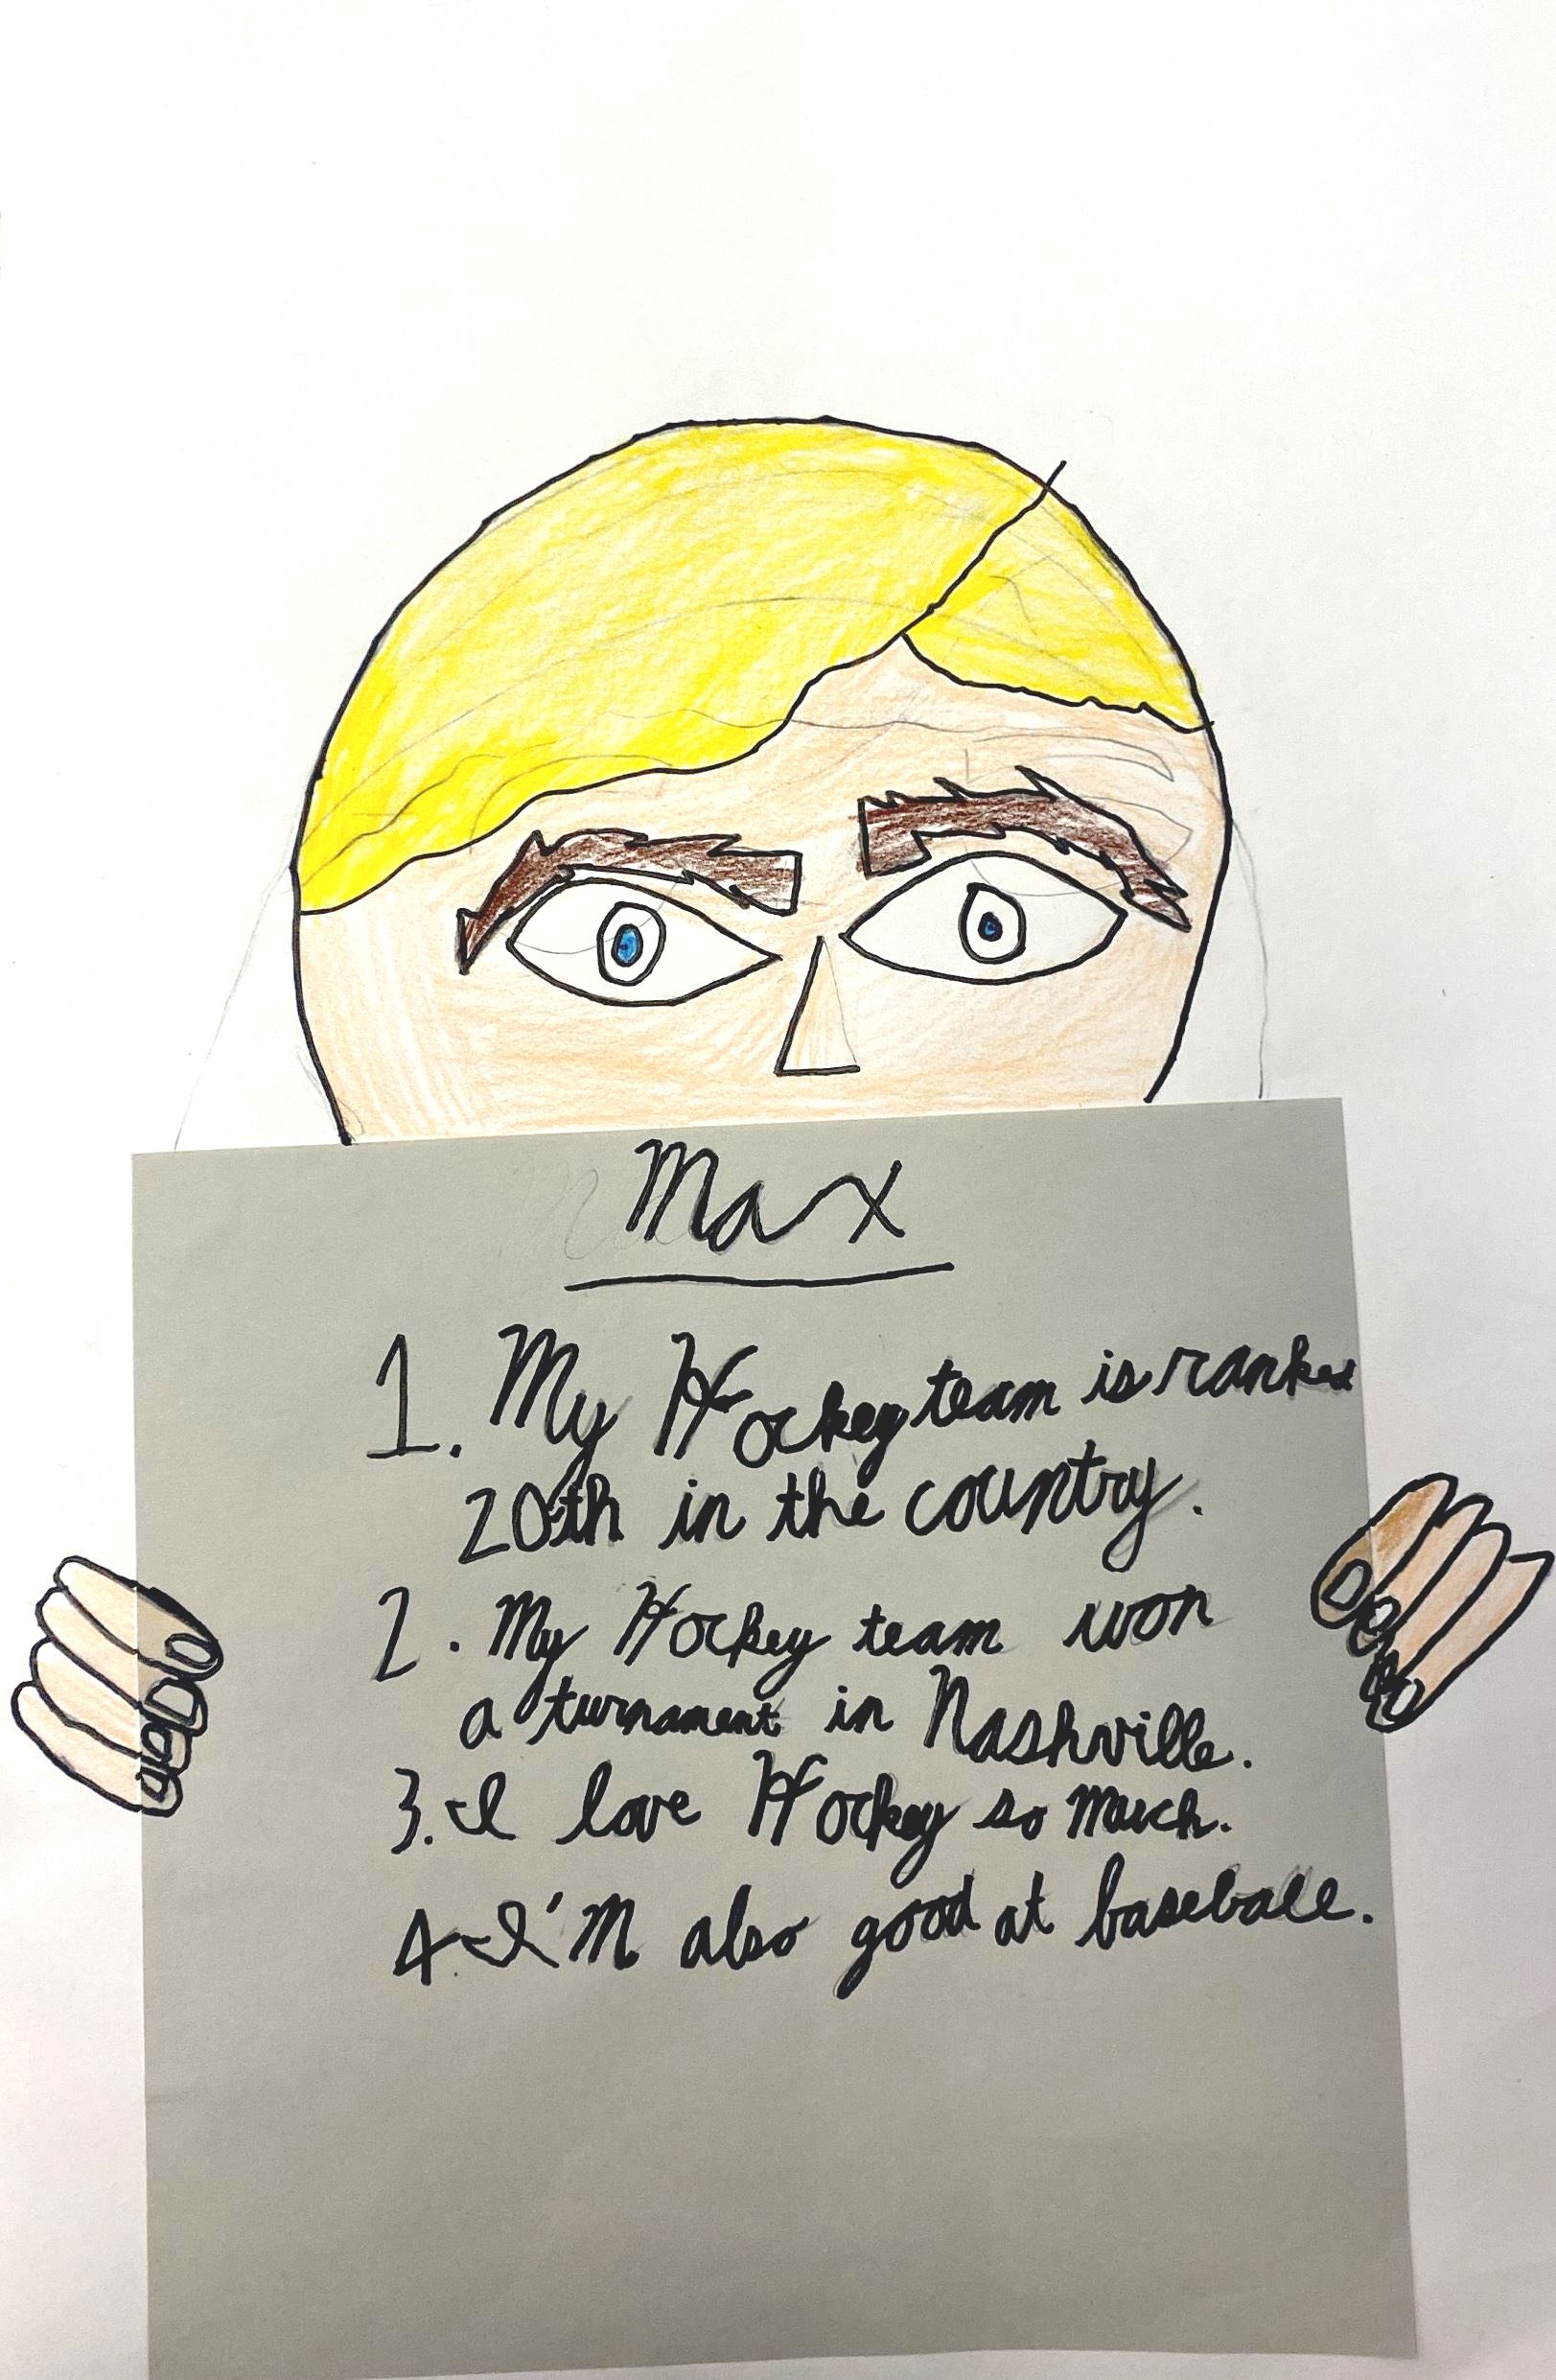 Max
1. My Hockey team is ranked
20th in the country.
2. My Hockey team won
a turnament in Nashville.
3. I love Hockey so much.
4. I'M also good at baseball.